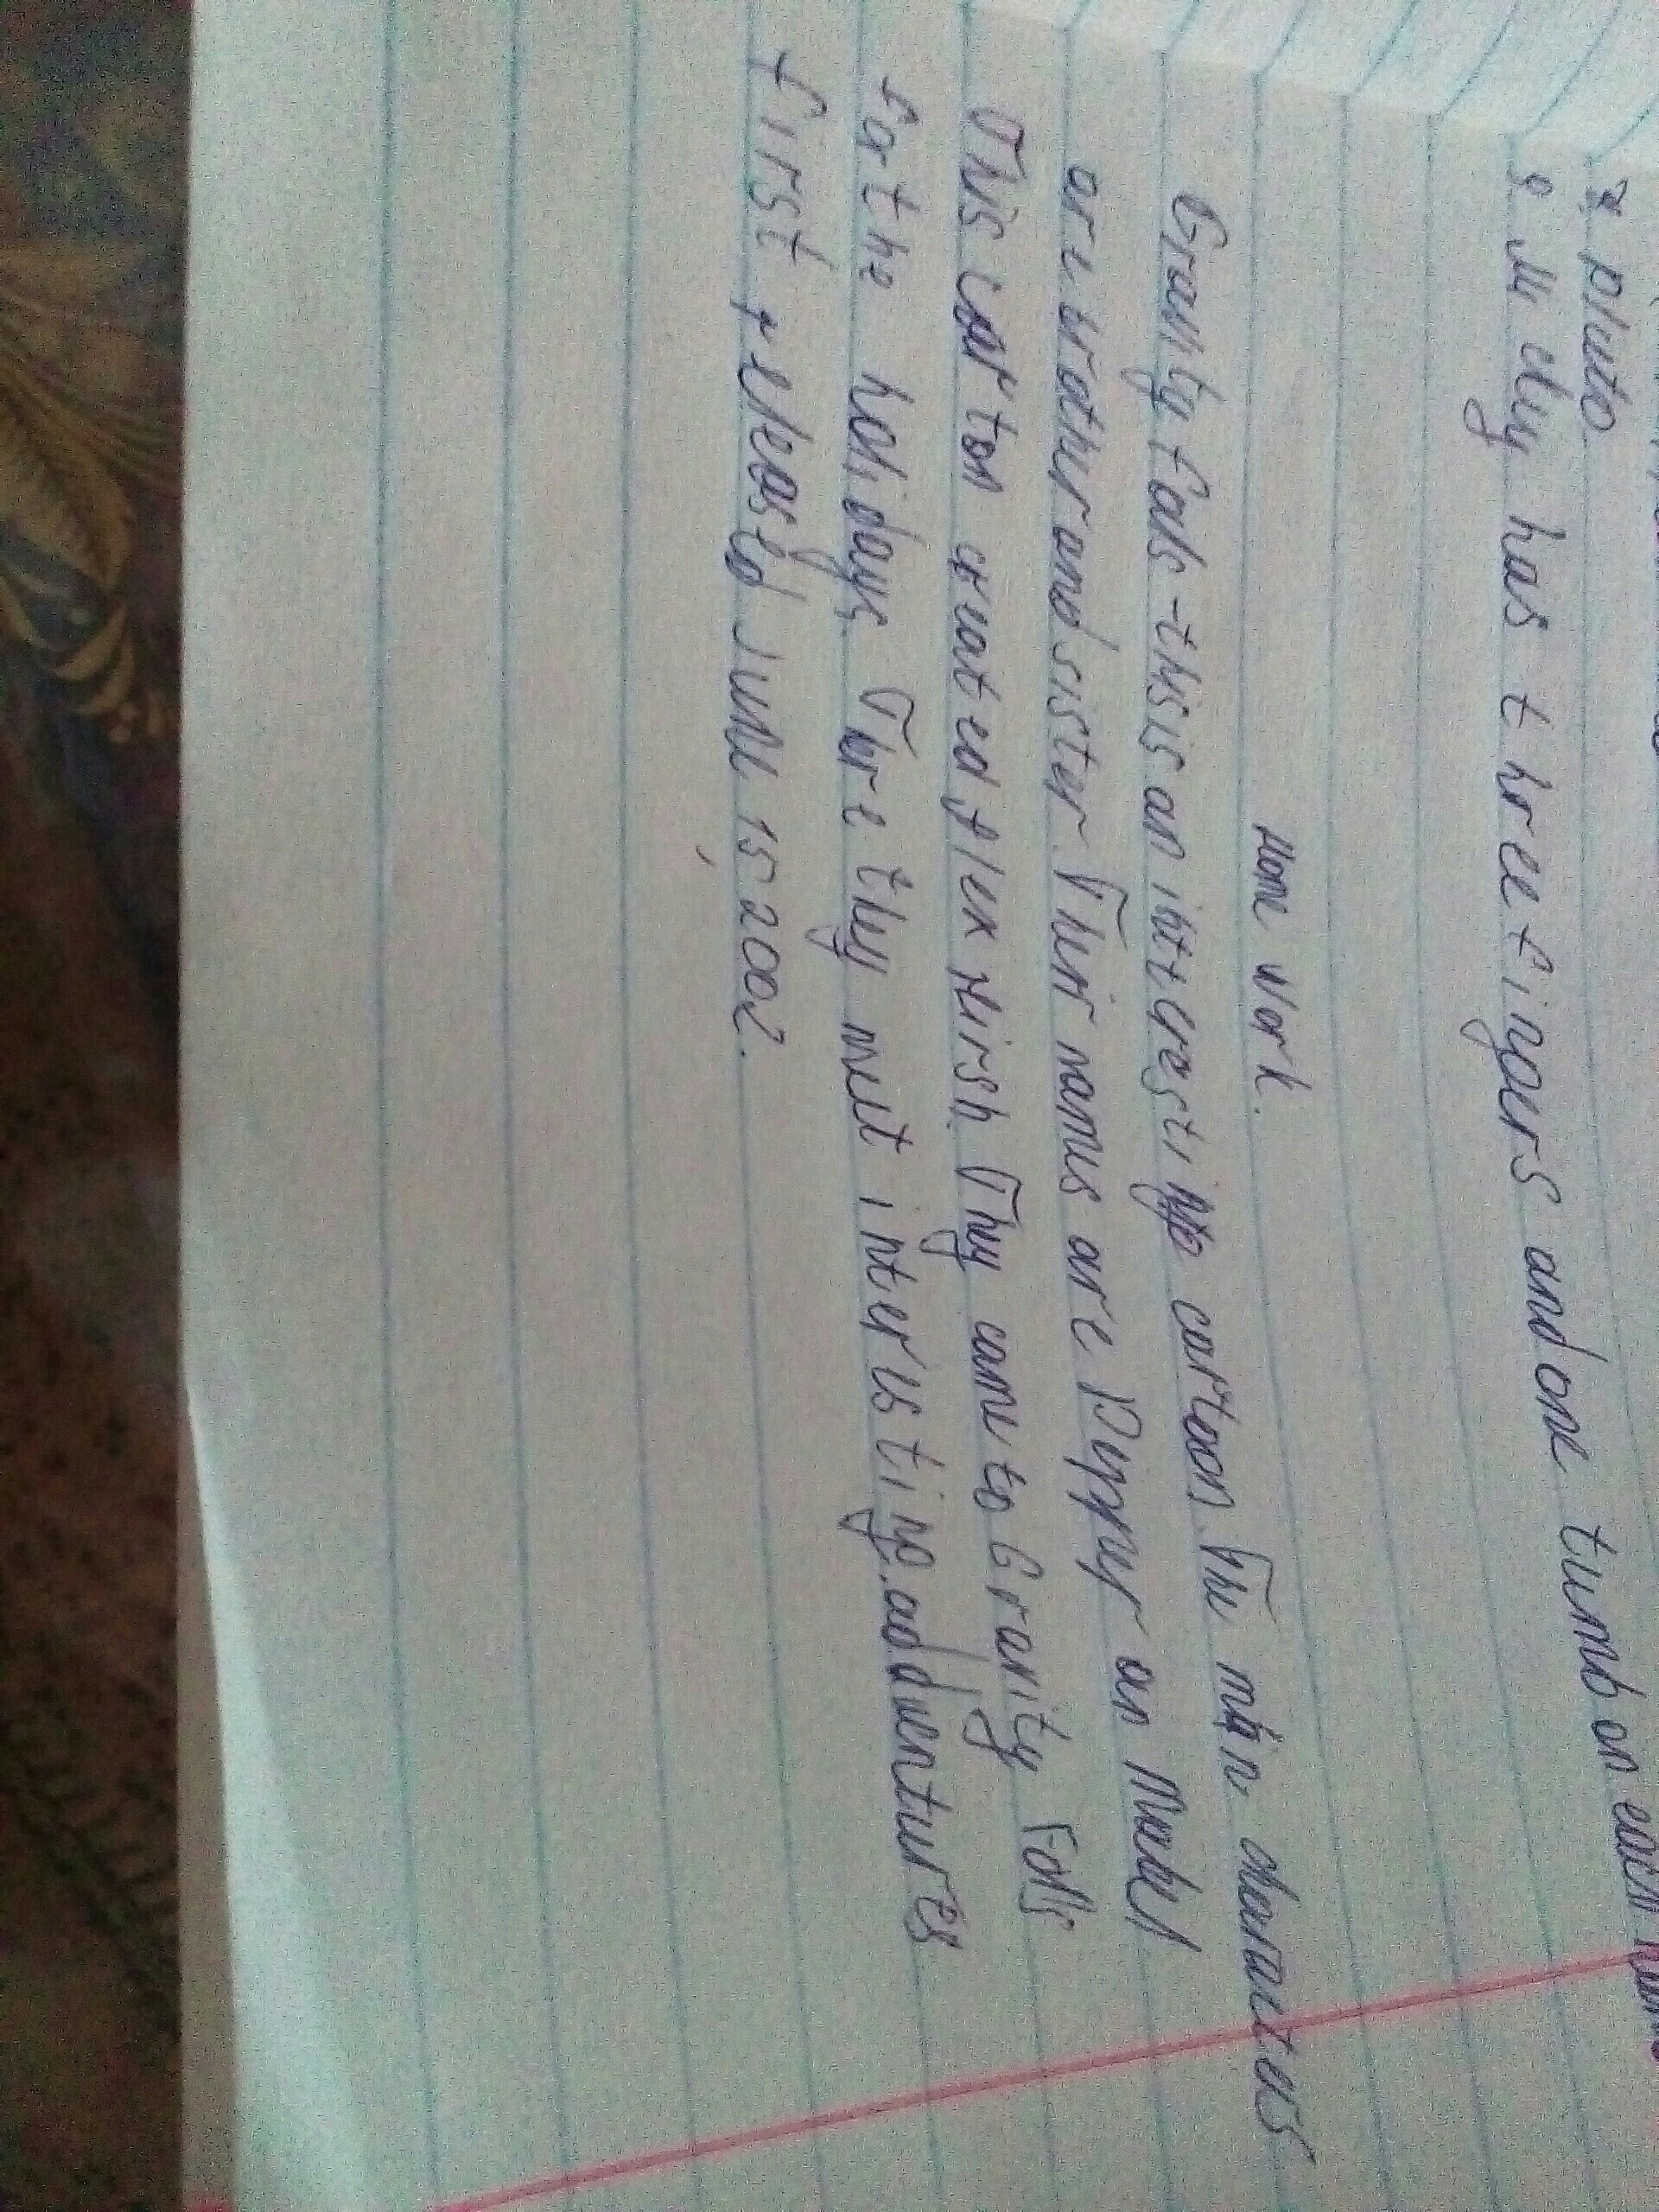 pluto.
Mickey has three fingers and one tumb on each
Home Work.
Gravity Fals - this is an intteresting cartoon. The main charactes
are brother and sister. Their names are Dypper an Maibel
This carton created Alex Hirsh. They came to Gravity Fols
for the holidays. There they meet interesting. addventures
first released June 15 2002.